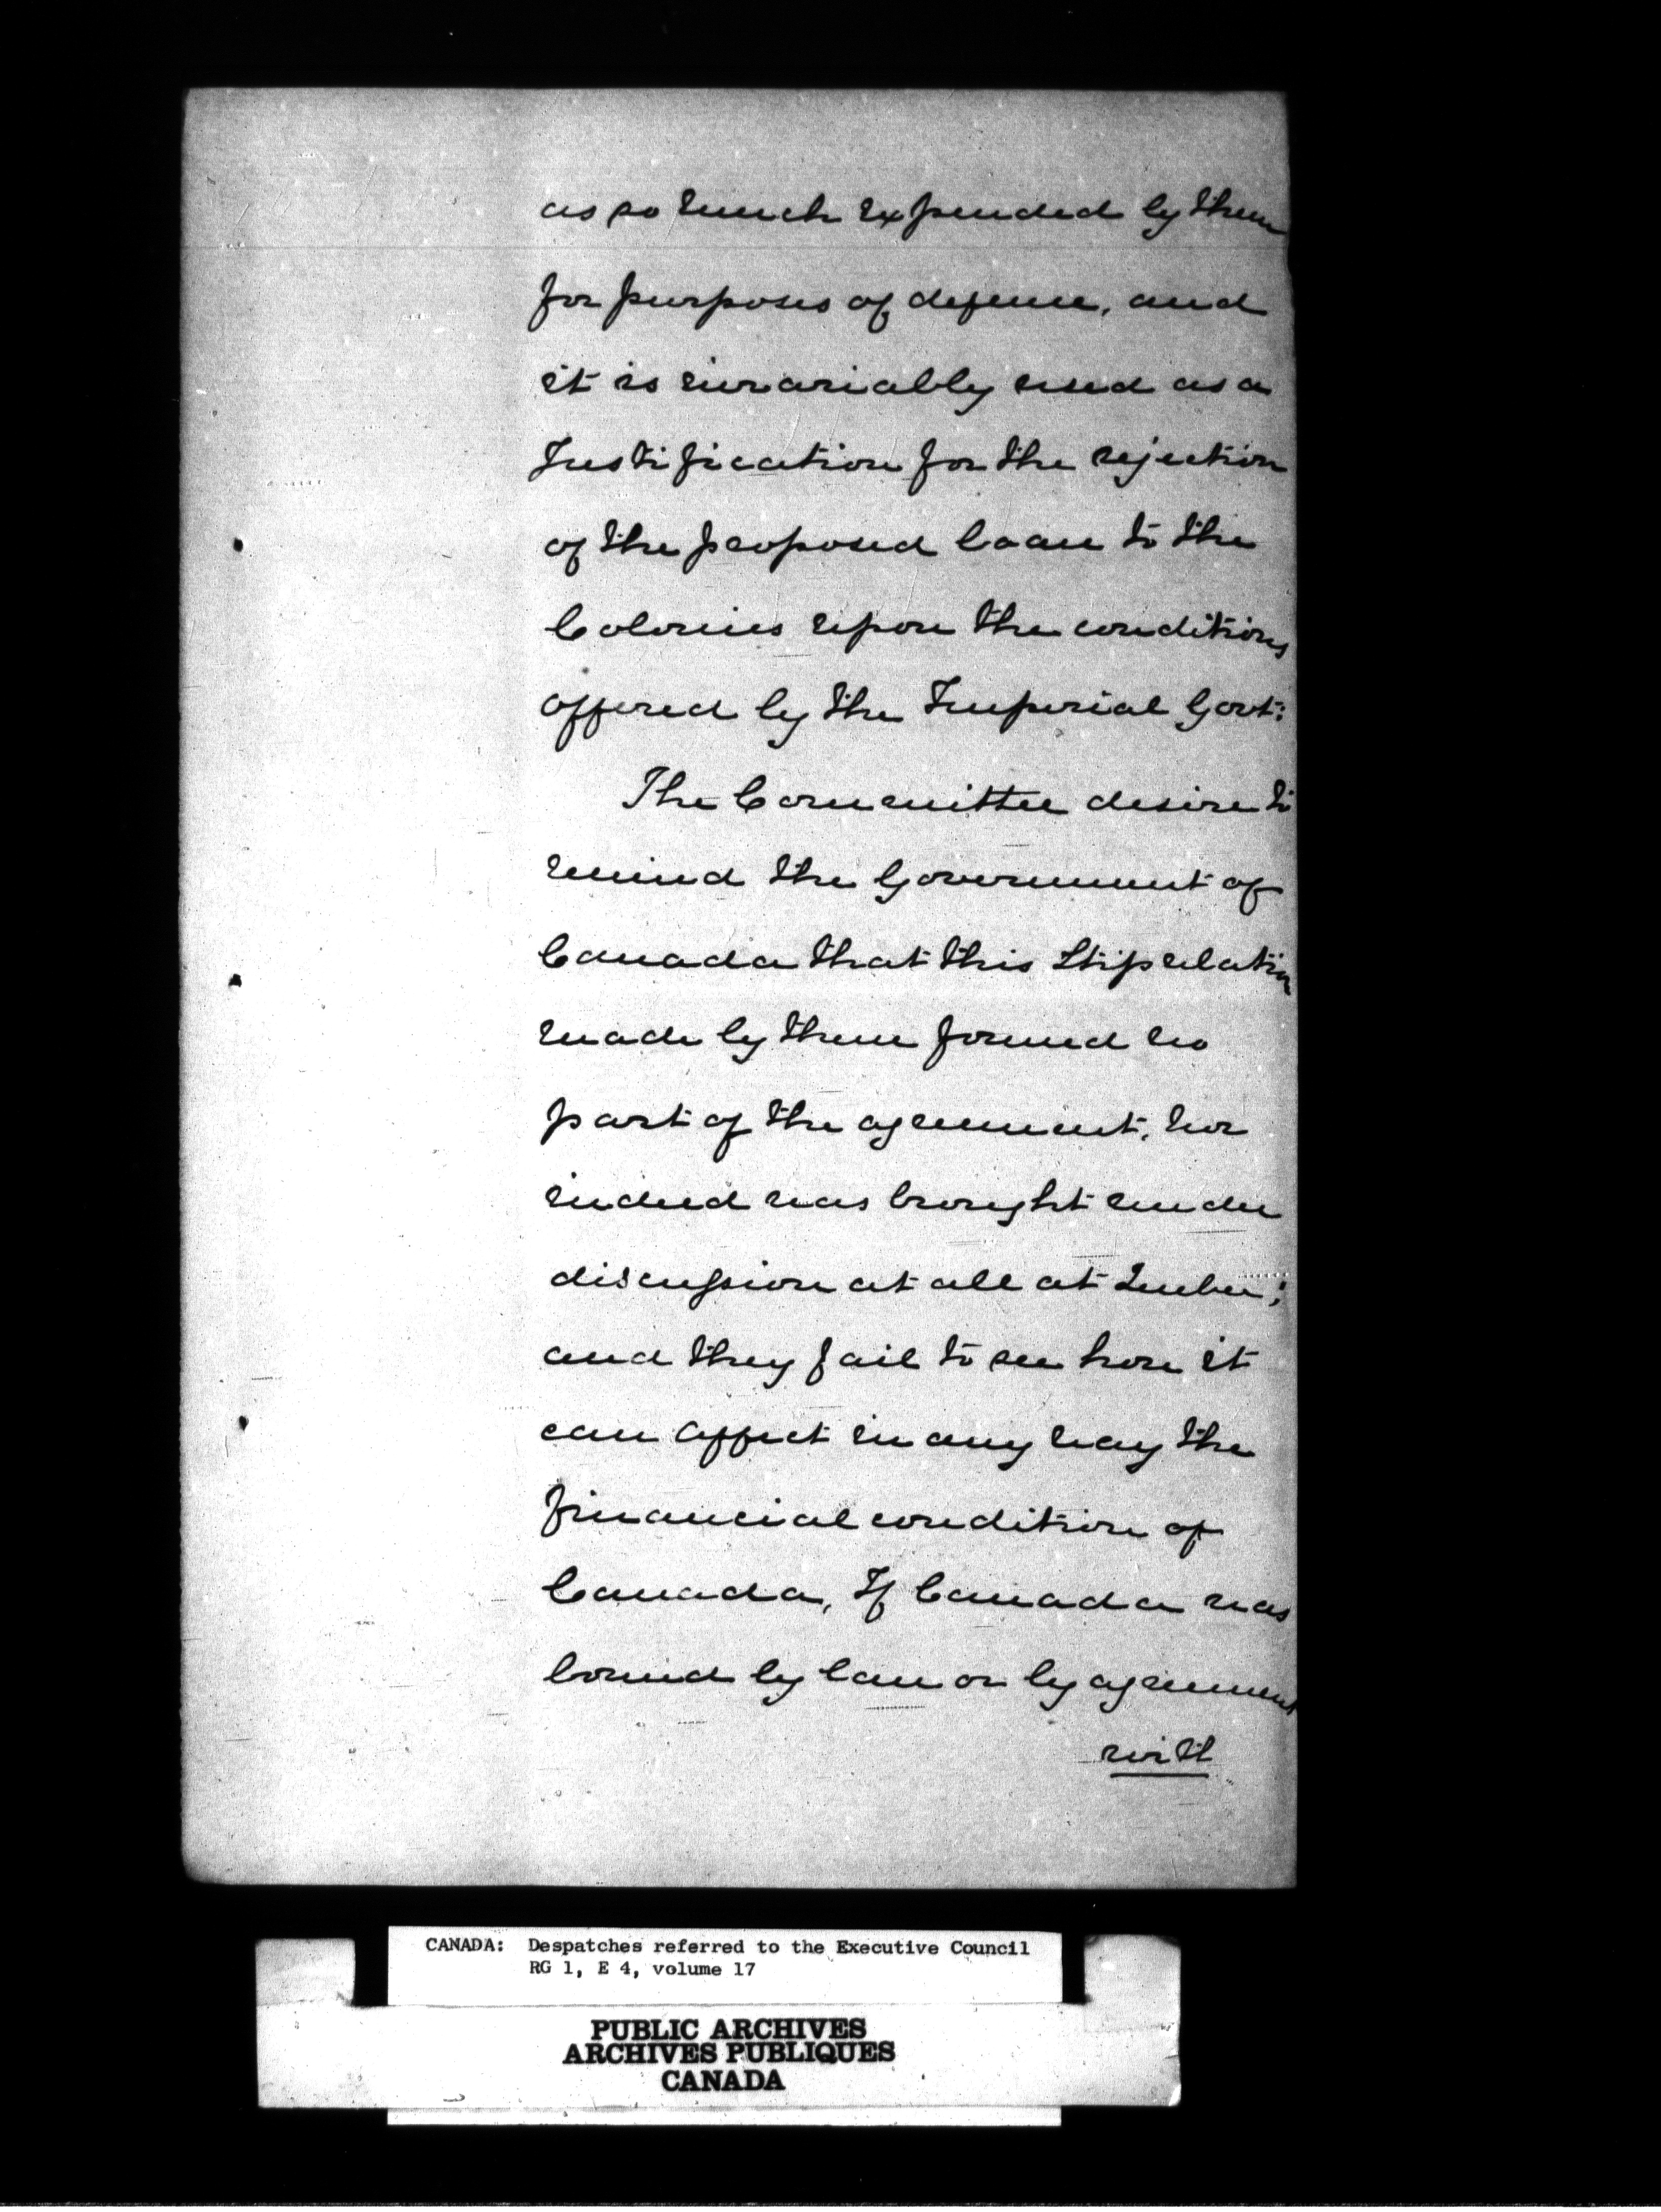 as so much expended by them
for purposes of defence, and
it is invariably used as a
Justification for the rejection
of the proposed loan to the
Colonies upon the conditions
offered by the Imperial Govt:
The Committee desire to
remind the Government of
Canada that this Stipulation
made by them formed no
part of the agreement, nor
indeed was brought under
discussion at all at Quebec;
and they fail to see how it
can affect in any way the
financial condition of
Canada, If Canada was
bound by law or by agreement
with
CANADA: Despatches referred to the Executive Council
RG 1, E 4, volume 17
PUBLIC ARCHIVES
ARCHIVES PUBLIQUES
CANADA